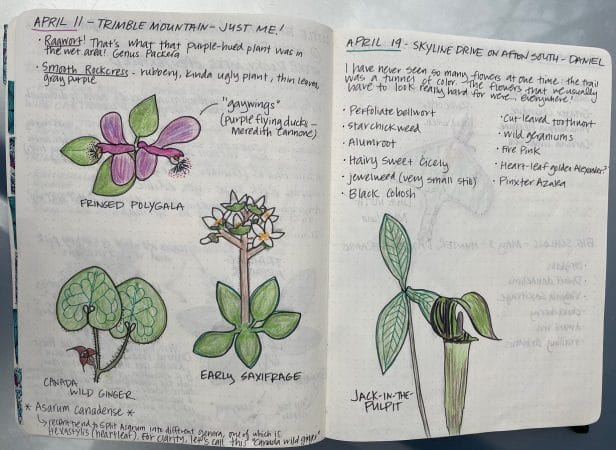 APRIL 11 - TRIMBLE MOUNTAIN - JUST ME!
• Ragwort! That's what that purple-hued plant was in
the wet area! Genus Packera
• Smooth Rockcress - rubbery, kinda ugly plant, thin leaves,
gray purple
"gaywings"
(purple flying ducks -
Meredith
FRINGED POLYGALA
EARLY SAXIFRAGE
CANADA
WILD GINGER
* Asarum Canadense *
recent trend to split Asarum into different genera, one of which is
Hexastylis (heartleaf). For clarity, let's call this "Canada wild ginger"
APRIL 19 - SKYLINE DRIVE ON AFTON SOUTH - DANIEL
I have never seen so many flowers at one time: the trail
was a tunnel of color. The flowers that we usually
have to look really hard for were... everywhere!
• Perfoliate bellwort
• Star chickweed
• Alumroot
• Hairy sweet cicely
• jewelweed (very small still)
• Black cohosh
• Cut-leaved toothwort
• wild geraniums
• Fire Pink
• Heart-leaf golden Alexander?
• Pinxter Azalea
JACK-IN-THE-
PULPIT